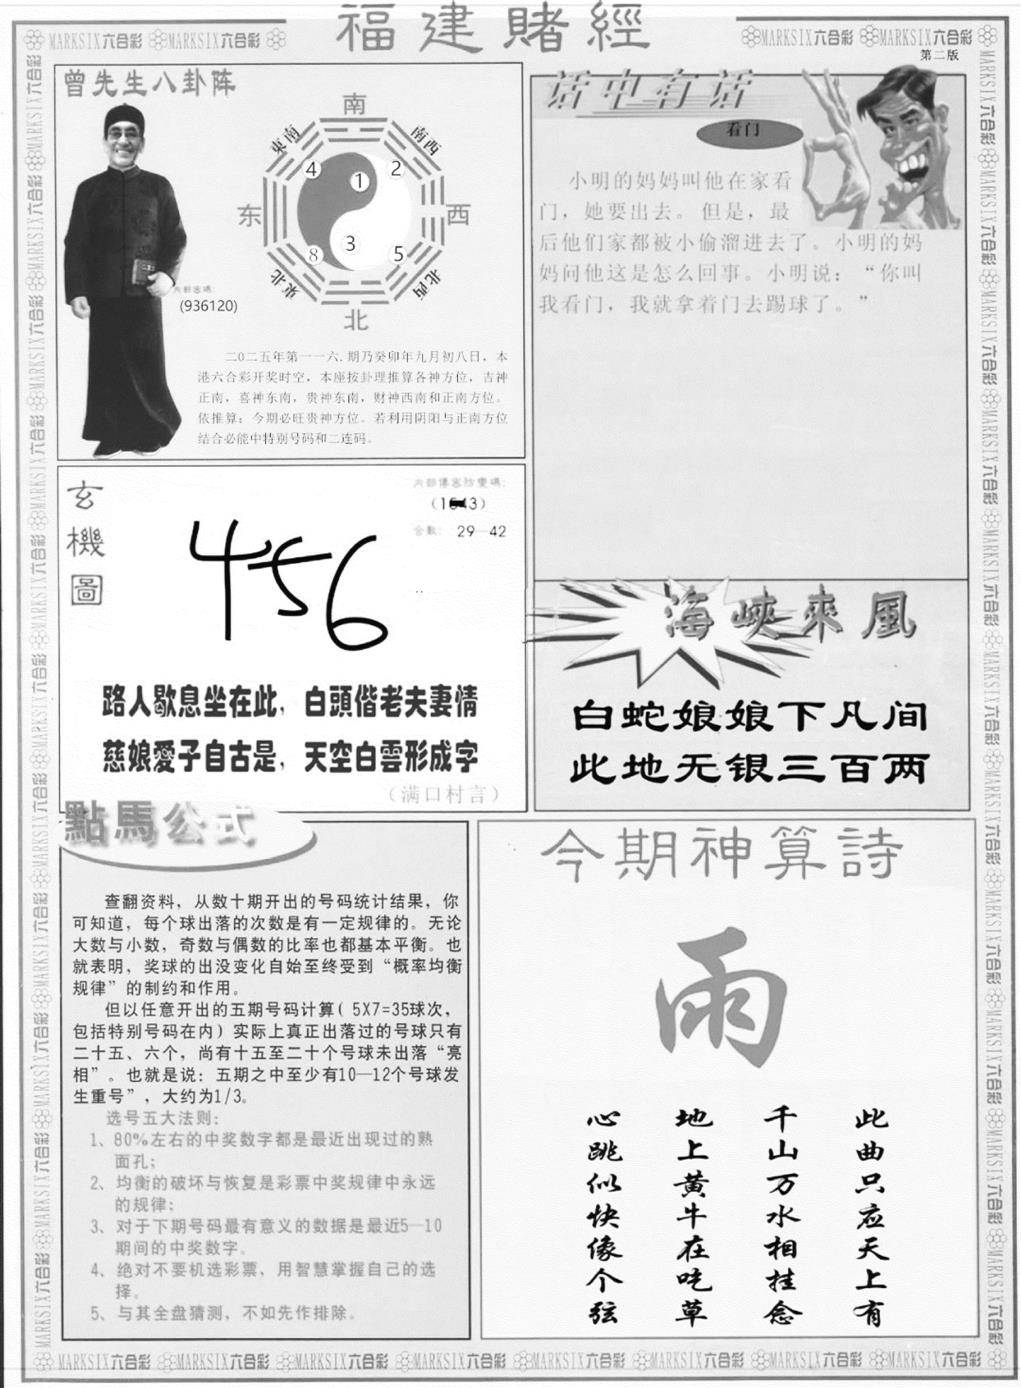 福建賭經
MARKSIX六合彩 MARKSIX六合彩
MARKSIX六合彩 MARKSIX六合彩
第二版
曾先生八卦阵
南
東南
南西
4
1
2
东
西
8
3
5
東北
北西
北
内部密碼:
(936120)
二0二五年第一一六.期乃癸卯年九月初八日，本
港六合彩开奖时空，本座按卦理推算各神方位，吉神
正南，喜神东南，贵神东南，财神西南和正南方位。
依推算：今期必旺贵神方位。若利用阴阳与正南方位
结合必能中特别号码和二连码。
话中有话
看门
小明的妈妈叫他在家看
门，她要出去。但是，最
后他们家都被小偷溜进去了。小明的妈
妈问他这是怎么回事。小明说：“你叫
我看门，我就拿着门去踢球了。”
玄機圖
合數： 29—42
456
路人歇息坐在此，白頭偕老夫妻情
慈娘愛子自古是，天空白雲形成字
（满口村言）
海峽來風
白蛇娘娘下凡间
此地无银三百两
點馬公式
查翻资料，从数十期开出的号码统计结果，你
可知道，每个球出落的次数是有一定规律的。无论
大数与小数，奇数与偶数的比率也都基本平衡。也
就表明，奖球的出没变化自始至终受到“概率均衡
规律”的制约和作用。
但以任意开出的五期号码计算( 5X7=35球次，
包括特别号码在内）实际上真正出落过的号球只有
二十五、六个，尚有十五至二十个号球未出落“亮
相”。也就是说：五期之中至少有10—12个号球发
生重号”，大约为1/3。
选号五大法则：
1、80%左右的中奖数字都是最近出现过的熟
面孔；
2、均衡的破坏与恢复是彩票中奖规律中永远
的规律；
3、对于下期号码最有意义的数据是最近5—10
期间的中奖数字。
4、绝对不要机选彩票，用智慧掌握自己的选
择。
5、与其全盘猜测，不如先作排除。
今期神算詩
雨
此曲只应天上有
千山万水相挂念
地上黄牛在吃草
心跳似快像个弦
MARKSIX六合彩 MARKSIX六合彩 MARKSIX六合彩 MARKSIX六合彩 MARKSIX六合彩 MARKSIX六合彩 MARKSIX六合彩 MARKSIX六合彩